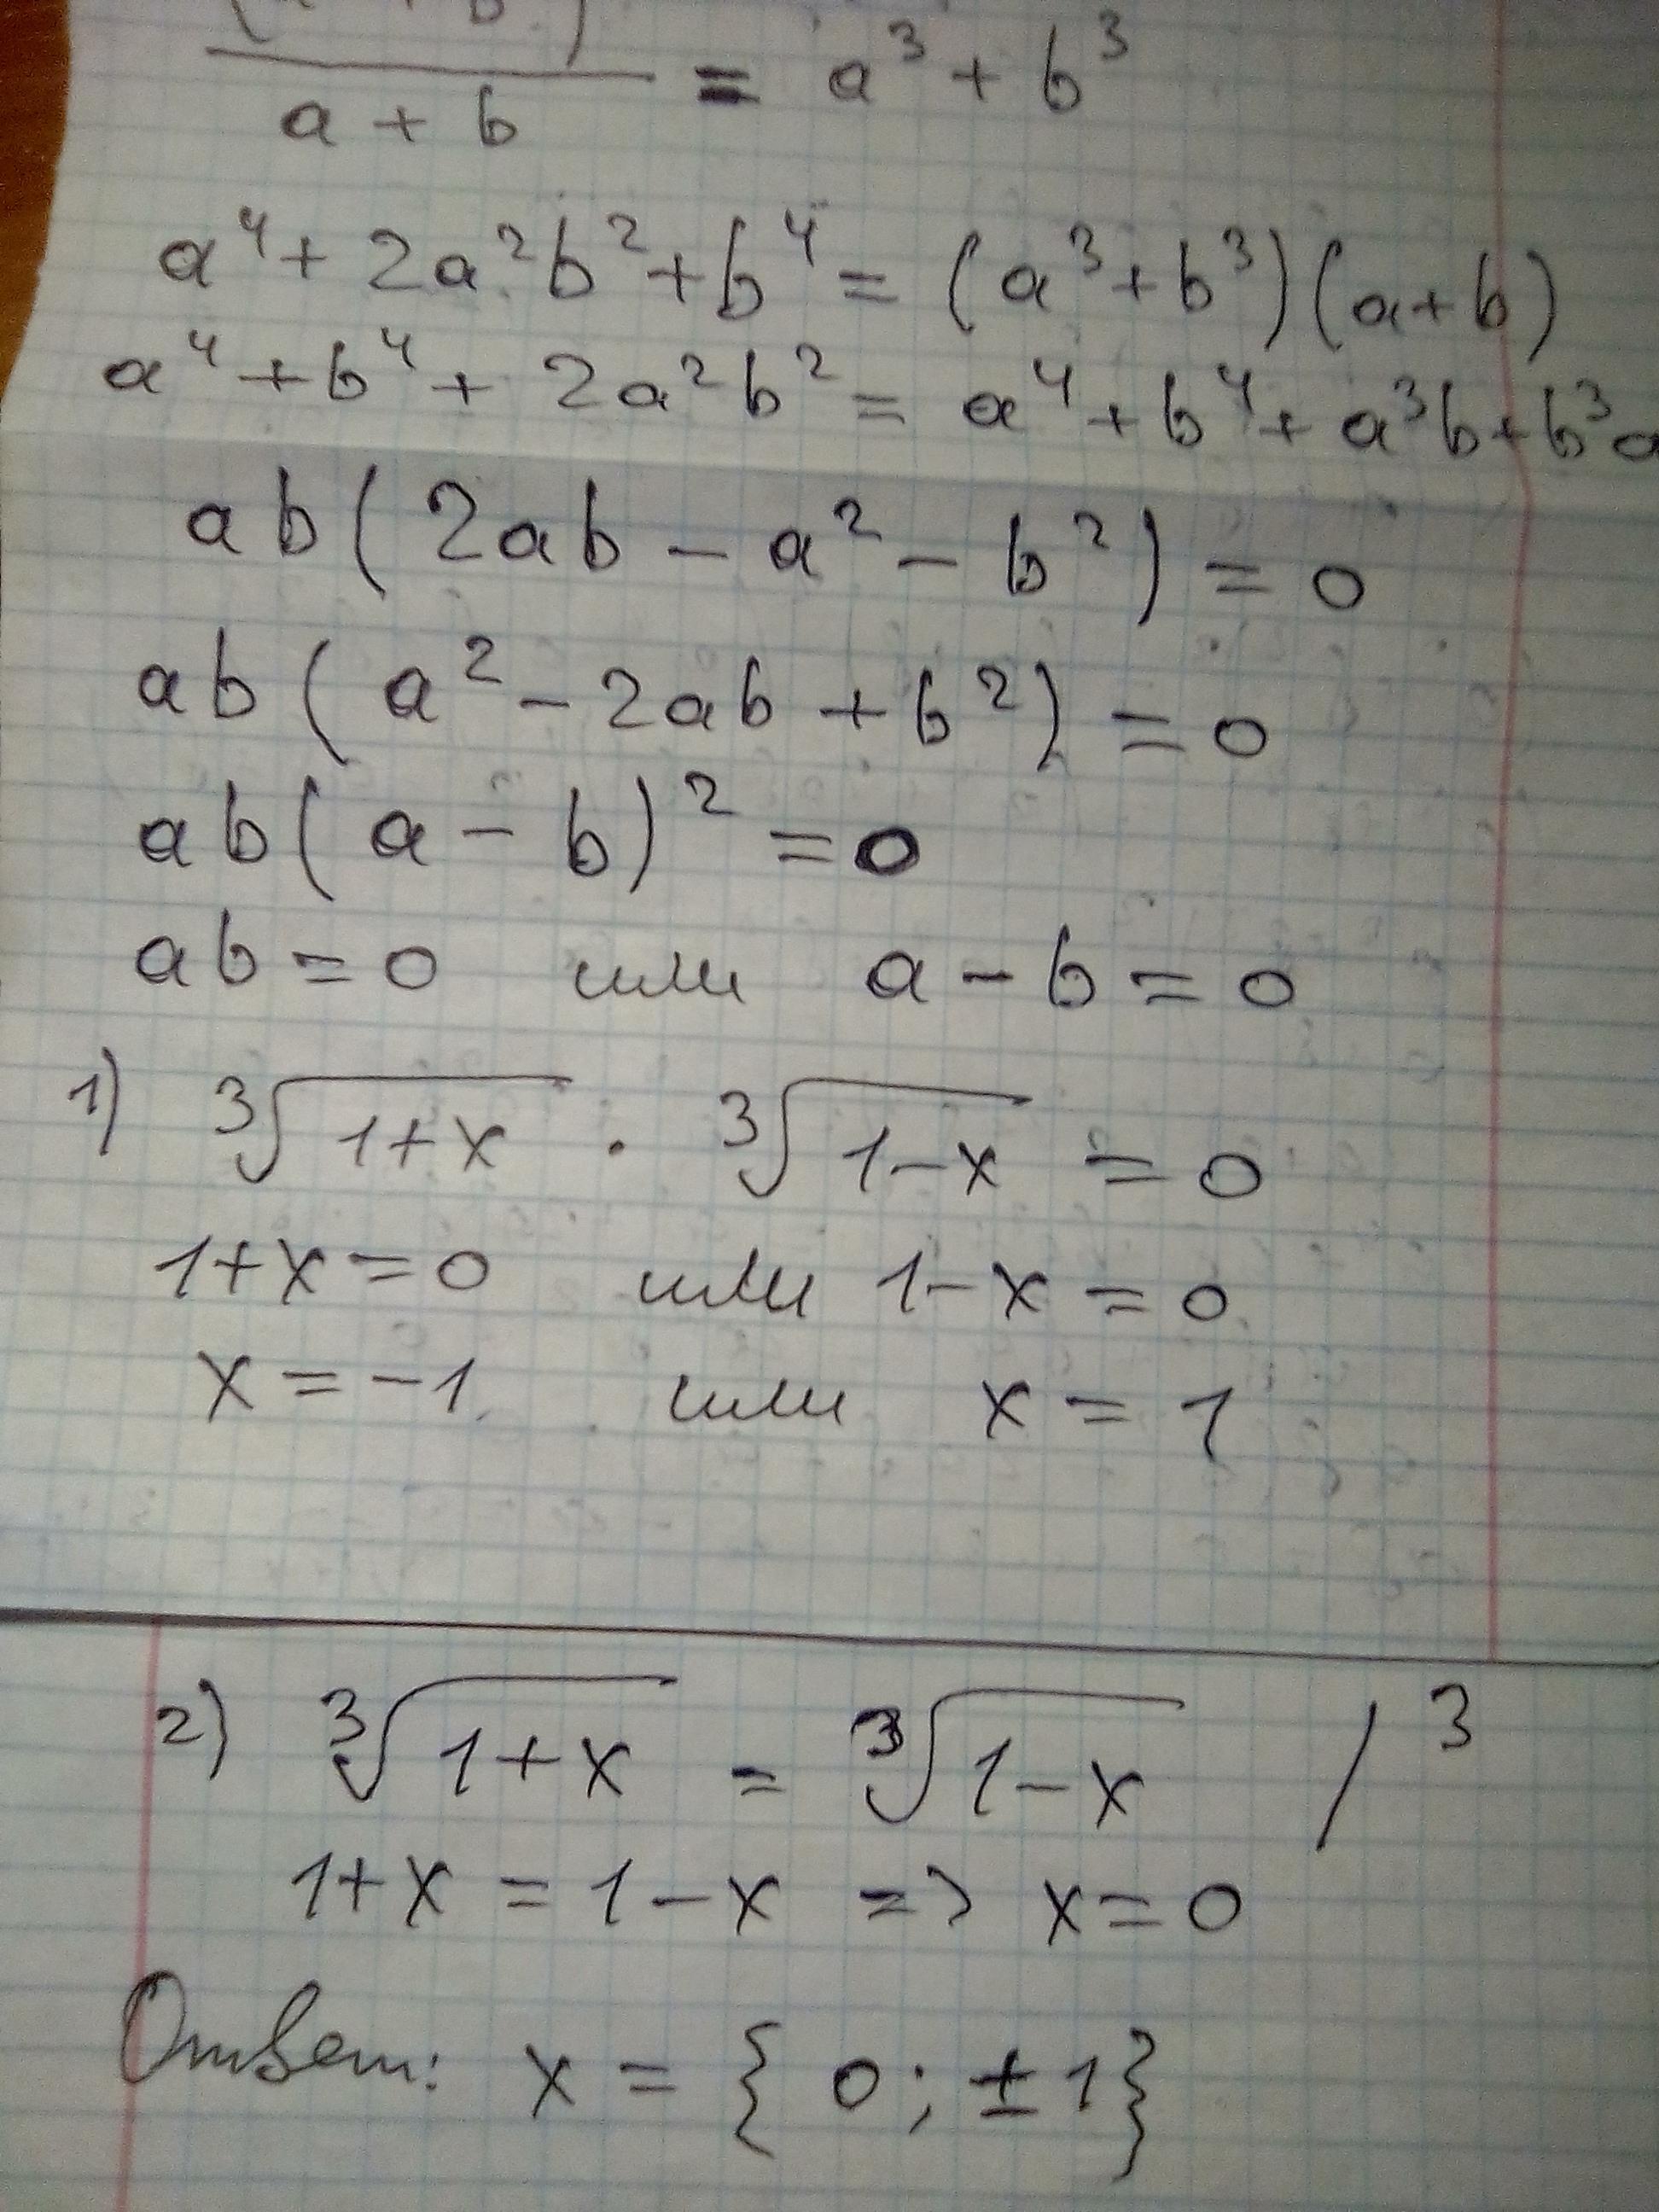 a + b = a³ + b³
a⁴ + 2a²b² + b⁴ = (a³ + b³)(a + b)
a⁴ + b⁴ + 2a²b² = a⁴ + b⁴ + a³b + b³a
ab(2ab - a² - b²) = 0
ab(a² - 2ab + b²) = 0
ab(a - b)² = 0
ab = 0 или a - b = 0
1) ³√(1+x) · ³√(1-x) = 0
1+x = 0 или 1-x = 0
x = -1 или x = 1
2) ³√(1+x) = ³√(1-x) /³
1+x = 1-x => x = 0
Ответ: x = {0; ±1}